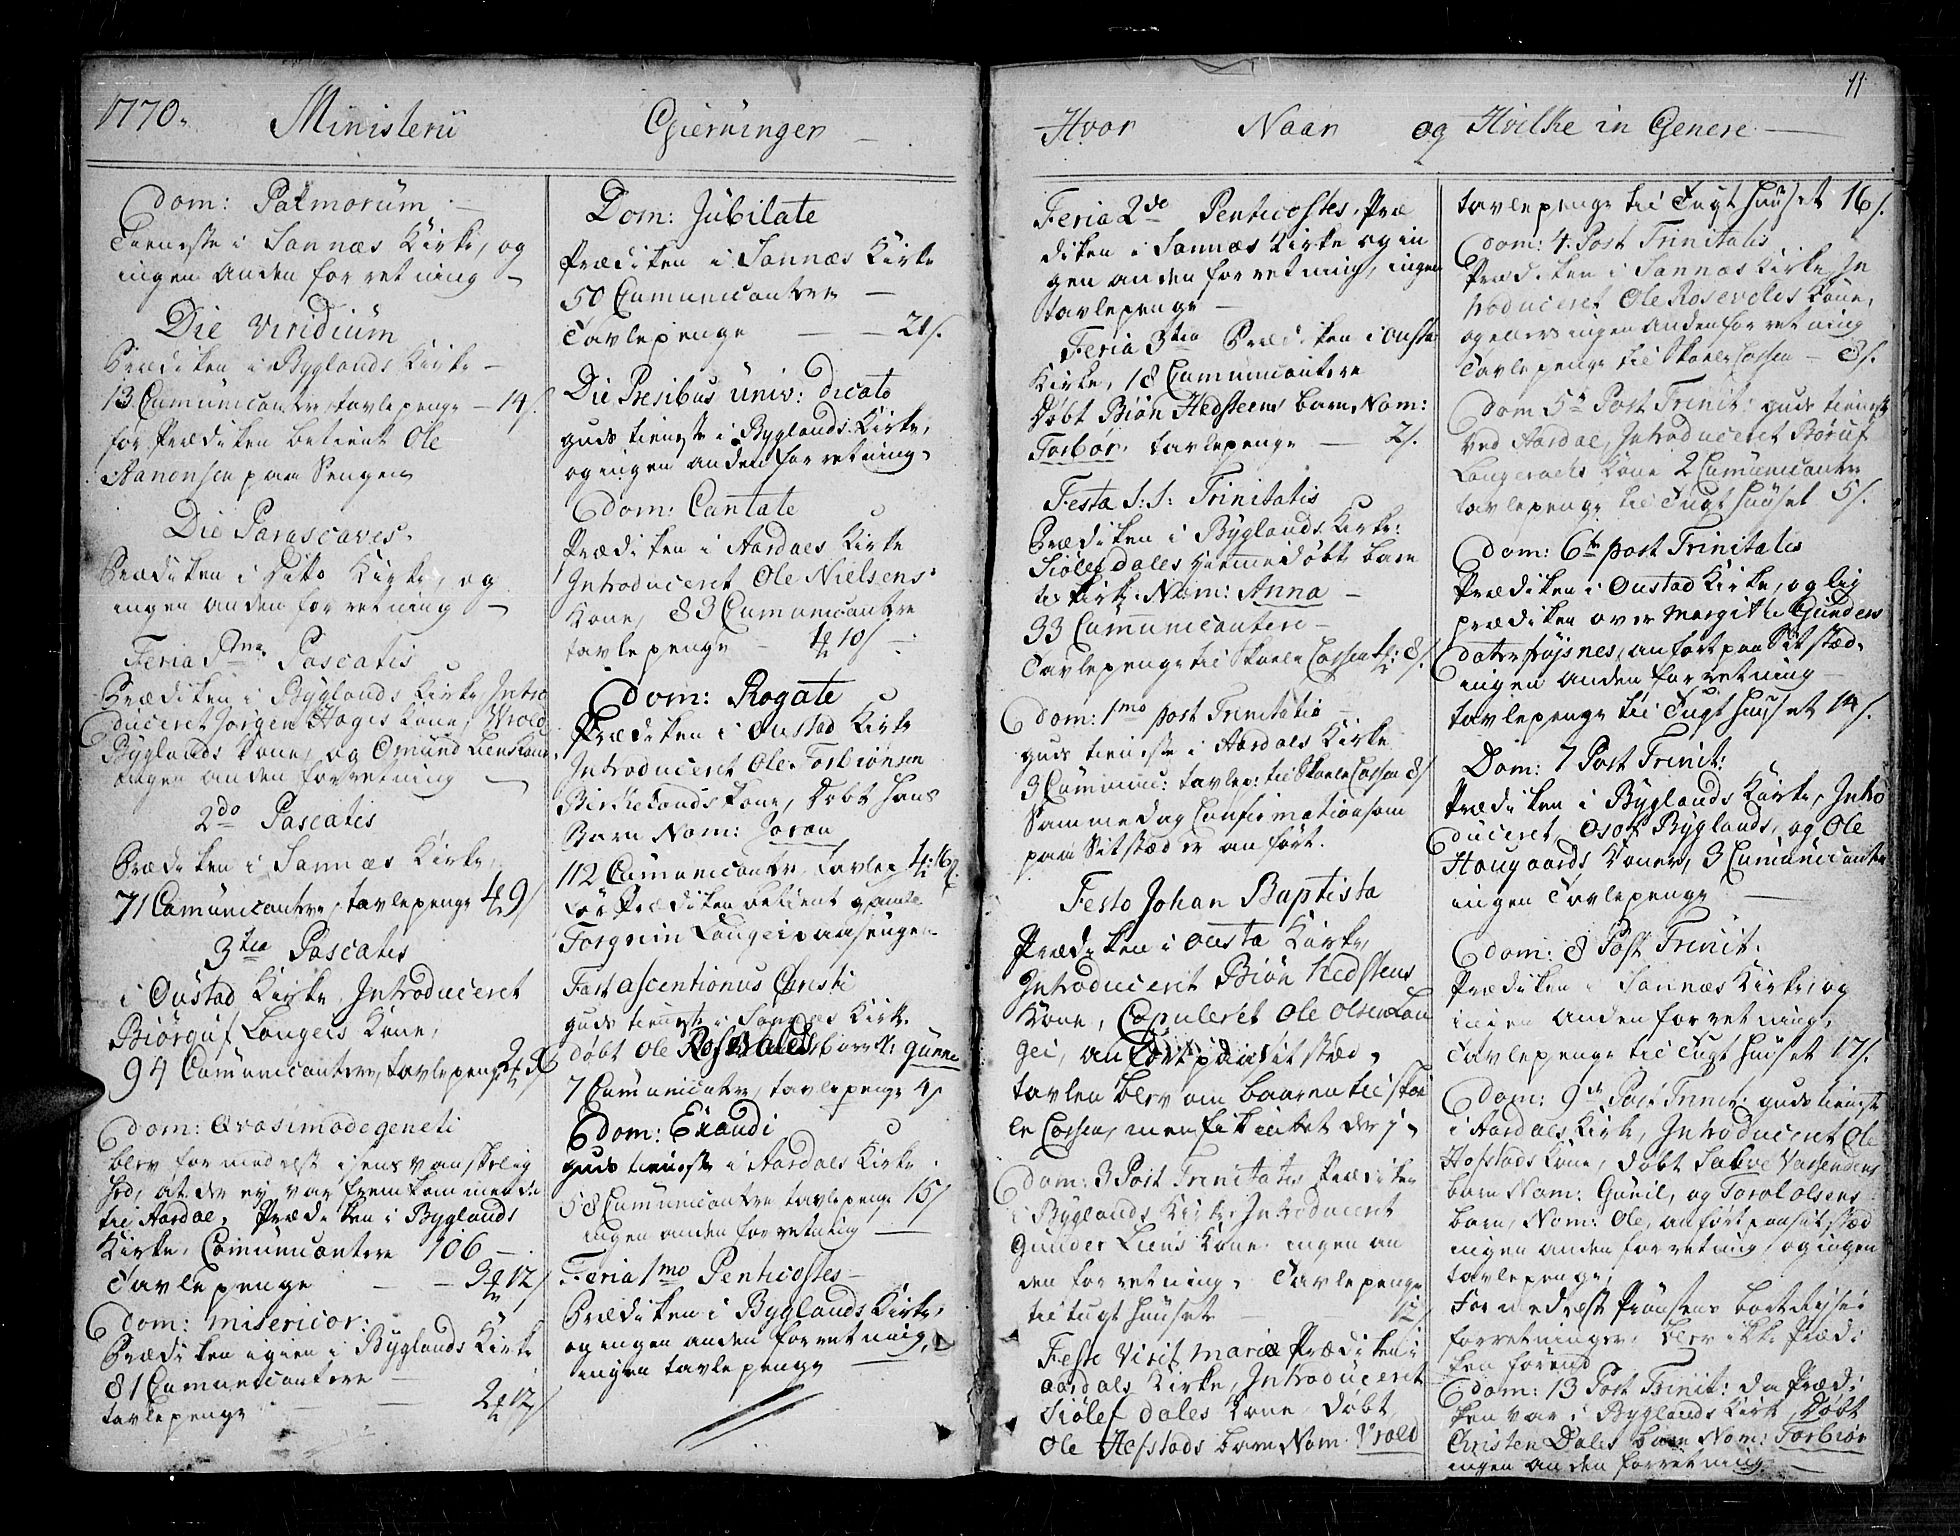 1770. Ministerii Gierninger
dom: Palmorum
Tieneste i Sannæs Kirke, og
ingen anden forretning
Die Viridium
Prædiken i Byglands Kirke
13 Cumunicantere, tavlepenge - 14 s.
for Prædiken betient Ole
Aanonsen paa Sengen
Die Parasceves.
Prædiken i dito Kirke, og
ingen anden forretning
Feria 1ma Pascatis
Prædiken i Byglands Kirke, Intro
duceret Jørgen Hagis Kone, Wrold
Byglands Kone, og Omund Liens Kone
ingen anden forretning
2do Pascatis
Prædiken i Sannæs Kirke
71 Comunicantere, tavlepenge 4 9 s
3tia Pascatis
i Oustad Kirke, Introduceret
Biørguf Langeis Kone,
94 Comunicantere, tavlepenge
dom: Qvasimodogeneti
blev formedelst isens vanskelig
hed, at der ey var fremkommende
til Aardal, Prædiken i Byglands
Kirke, Comunicantere 106
Tavlepenge - - 3 12 s
dom: misericor:
Prædiken igien i Byglands Kirke
81 Cumunicantere
tavlepenge - 2 12 s
Dom: Jubilate
Prædiken i Sannæs Kirke
50 Cumunicantere
Tavlepenge - - 21 s.
Die Presibus univ: dicato
guds tieneste i Byglands Kirke,
og ingen anden forretning.
dom: Cantate
Prædiken i Aardals Kirke
Introduceret Ole Nielsens
Kone, 83 Cumunicantere
tavlepenge - 10 s
dom: Rogate
Prædiken i Oustad Kirke
Introduceret Ole Torbiønsen
Birkelands Kone, Døbt hans
Barn Nom: Joran
112 Cumunicantere, tavlep 4: 16
for Prædiken betient gamle
Torgrim Langei paa senge
Fest ascentionus Christi
guds tieneste i Sannæs Kirke
døbt Ole Rosvalds barn N: Gunne
7 Cumunicantere, tavlepenge 4 s
dom: Exaudi
guds tieneste i Aardals Kirke
58 Cumunicantere tavlepenge 15 s
ingen anden forretning
Feria 1mo Penticostes
Prædiken i Byglands Kirke,
og ingen anden forretning,
ingen tavlepenge
11
Hvor Naar og Hvilke in Genere
Feria 2de Penticostes, Præ
diken i Sannæs Kirke og in
gen anden forretning, ingen
tavlepenge
Feria 3tia Prædiken i Ousta
Kirke, 18 Cumunicantere
Døbt Biøn Hedsteens barn Nom:
Torbor, tavlepenge - 2 s.
Festa S: S: Trinitatis
Prædiken i Byglands Kirke:
Siølef dales hiemmedøbt barn
til Kirke. Nom: Anna
33 Cumunicantere
Tavlepenge til Skole Cassen 4: 8 s
dom: 1mo post Trinitatis
guds tieneste i Aardals Kirke
3 Commun: tavlep: til Skole Cassen 8 s
Samme dag Confirmation som
paa Sit stæd er anført.
Festo Johan Baptista
Prædiken i Ousta Kirke,
Introduceret Biøn Hedstens
Kone, Copuleret Ole Olsen Lan
gei, anført paa sit stæd,
tavlen blev om baaren til sko
le Cassen, men fik intet der i,
dom: 3 Post Trinitatis Prædiken
i Byglands Kirke, Introduceret
Gunder Liens Kone, ingen an
den forretning, Tavlepenge
til tugt huuset 12
Feste Visit mariæ Prædiken i
aardals Kirke, Introduceret
Siølef dales Kone, døbt
Ole Hefstads barn Nom. Wrold
tavlepenge til Tugt huuset 16 s.
dom: 4. Post Trinitatis
Prædiken i Sannæs Kirke, In
troduceret Ole Rosevelds Kone,
og ellers ingen anden forretning
Tavlepenge til Skole Cassen - 8 s.
Dom 5te Post Trinit: guds tieneste
ved Aardal, Introduceret Børuf
Langeraks Kone 2 Cumunicantere
tavlepenge til Tugt huuset 5 s.
dom: 6te post Trinitatis
Prædiken i Oustad Kirke, og lig
prædiken over Margith Gunders
dater frøjsnes, anført paa Sit stæd.
ingen anden forretning
tavlepenge til Tugt huuset 14 s.
Dom: 7 Post Trinit:
Prædiken i Byglands Kirke, Intro
duceret Osof Byglands, og Ole
Hougaards Koner, 3 Cumunicantere
ingen Tavlepenge
dom: 8 Post Trinit.
Prædiken i Sannæs Kirke, og
ingen anden forretning,
Tavlepenge til Tugt huuset 17 s.
dom: 9de Post Trinit: guds tieneste
i Aardals Kirke, Introduceret Ole
Hofstads Kone, døbt Salve Vassendens
barn Nom: Guniil, og Torol olsens
barn, Nom: Ole, anført paa sit stæd
ingen anden forretning, og ingen
tavlepenge,
Formedelst Præstens bortrejse i
forretninger, blev ikke Prædi
ken førend
dom: 13 Post Trinit: da Prædi
ken var i Byglands Kirke, Døbt
Christen Dales barn Nom: Torbiør
ingen anden forretning